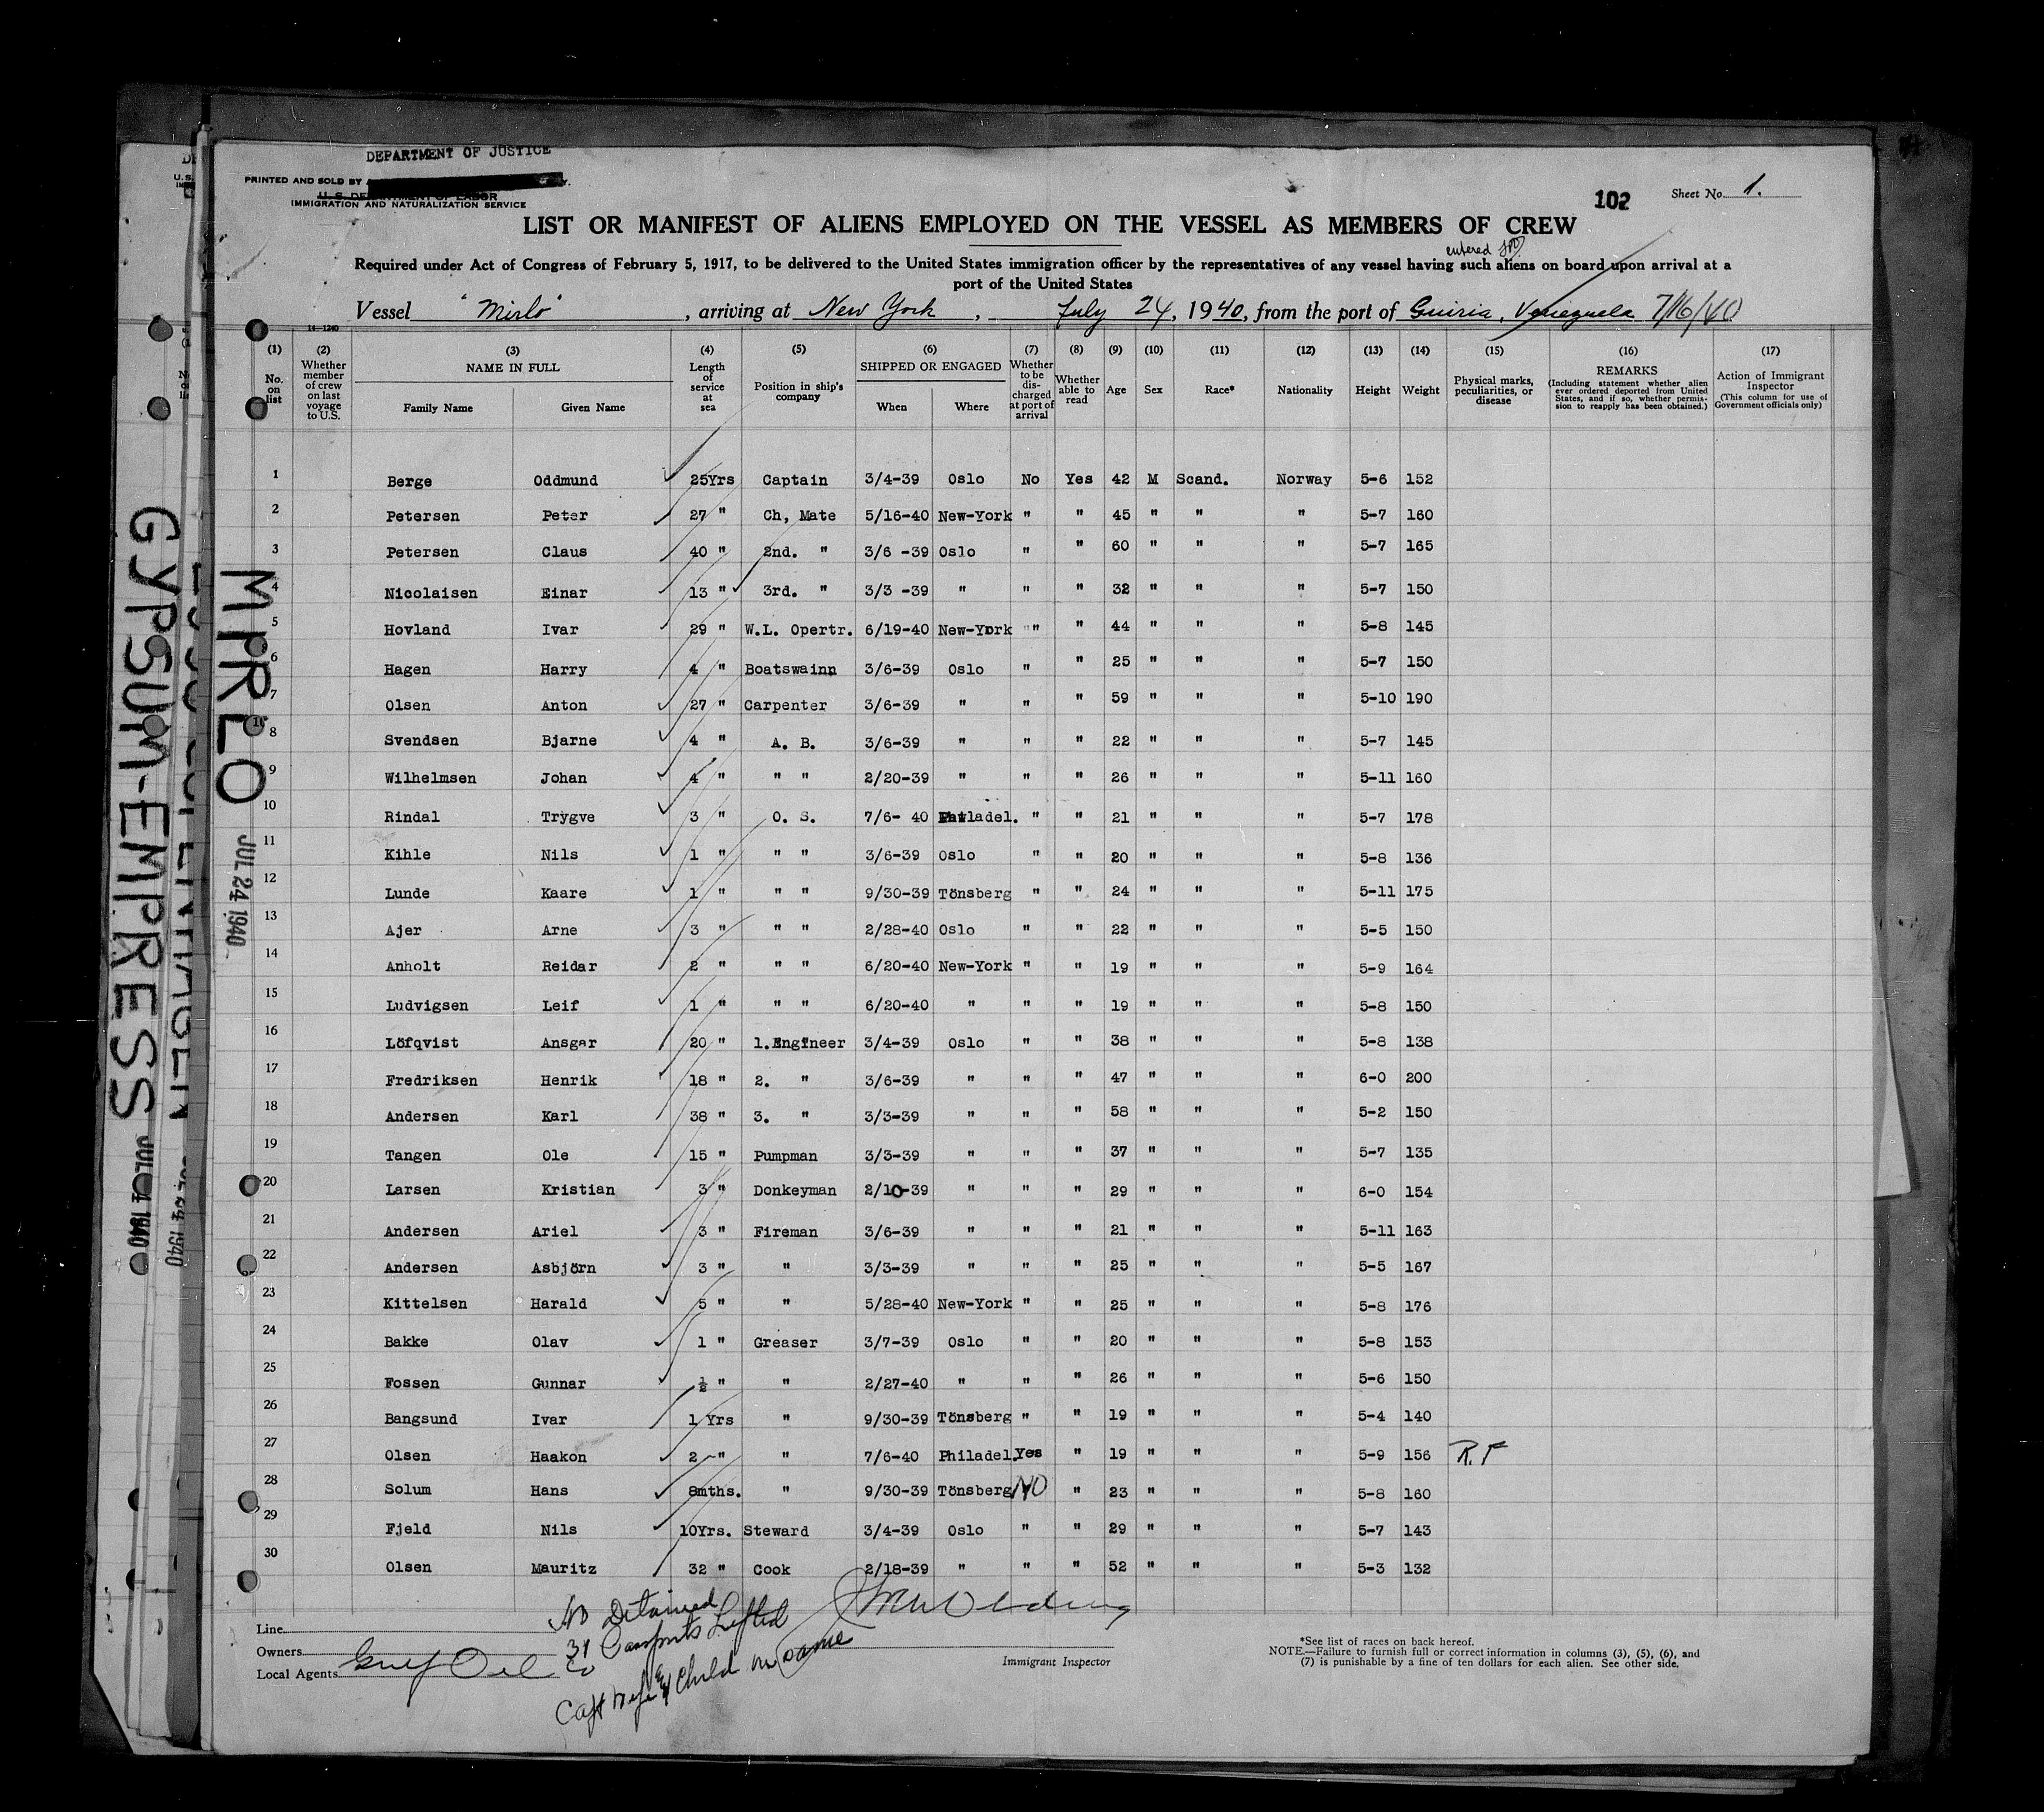 DEPARTMENT OF JUSTICE
PRINTED AND SOLD BY
U. S. DEPARTMENT OF LABOR
IMMIGRATION AND NATURALIZATION SERVICE
102
Sheet No. 1.
LIST OR MANIFEST OF ALIENS EMPLOYED ON THE VESSEL AS MEMBERS OF CREW
entered
Required under Act of Congress of February 5, 1917, to be delivered to the United States immigration officer by the representatives of any vessel having such aliens on board upon arrival at a
port of the United States
Vessel "Mirlo", arriving at New York, July 24, 1940, from the port of Guiria, Venezuela 7/16/40
14—1240
(1) No. on list
(2) Whether member of crew on last voyage to U.S.
(3) NAME IN FULL Family Name Given Name
(4) Length of service at sea
(5) Position in ship's company
(6) SHIPPED OR ENGAGED When Where
(7) Whether to be discharged at port of arrival
(8) Whether able to read
(9) Age
(10) Sex
(11) Race*
(12) Nationality
(13) Height
(14) Weight
(15) Physical marks, peculiarities, or disease
(16) REMARKS (Including statement whether alien ever ordered deported from United States, and if so, whether permission to reapply has been obtained.)
(17) Action of Immigrant Inspector (This column for use of Government officials only)
1 Berge Oddmund 25Yrs Captain 3/4-39 Oslo No Yes 42 M Scand. Norway 5-6 152
2 Petersen Peter 27 " Ch, Mate 5/16-40 New-York " " 45 " " " 5-7 160
3 Petersen Claus 40 " 2nd. " 3/6 -39 Oslo " " 60 " " " 5-7 165
4 Nicolaisen Einar 13 " 3rd. " 3/3 -39 " " " 32 " " " 5-7 150
5 Hovland Ivar 29 " W.L. Opertr. 6/19-40 New-York " " 44 " " " 5-8 145
6 Hagen Harry 4 " Boatswainn 3/6-39 Oslo " " 25 " " " 5-7 150
7 Olsen Anton 27 " Carpenter 3/6-39 " " " 59 " " " 5-10 190
8 Svendsen Bjarne 4 " A. B. 3/6-39 " " " 22 " " " 5-7 145
9 Wilhelmsen Johan 4 " " " 2/20-39 " " " 26 " " " 5-11 160
10 Rindal Trygve 3 " O. S. 7/6- 40 Philadel. " " 21 " " " 5-7 178
11 Kihle Nils 1 " " " 3/6-39 Oslo " " 20 " " " 5-8 136
12 Lunde Kaare 1 " " " 9/30-39 Tönsberg " " 24 " " " 5-11 175
13 Ajer Arne 3 " " " 2/28-40 Oslo " " 22 " " " 5-5 150
14 Anholt Reidar 2 " " " 6/20-40 New-York " " 19 " " " 5-9 164
15 Ludvigsen Leif 1 " " " 6/20-40 " " " 19 " " " 5-8 150
16 Löfqvist Ansgar 20 " 1.Engineer 3/4-39 Oslo " " 38 " " " 5-8 138
17 Fredriksen Henrik 18 " 2. " 3/6-39 " " " 47 " " " 6-0 200
18 Andersen Karl 38 " 3. " 3/3-39 " " " 58 " " " 5-2 150
19 Tangen Ole 15 " Pumpman 3/3-39 " " " 37 " " " 5-7 135
20 Larsen Kristian 3 " Donkeyman 2/10-39 " " " 29 " " " 6-0 154
21 Andersen Ariel 3 " Fireman 3/6-39 " " " 21 " " " 5-11 163
22 Andersen Asbjörn 3 " " 3/3-39 " " " 25 " " " 5-5 167
23 Kittelsen Harald 5 " " 5/28-40 New-York " " 25 " " " 5-8 176
24 Bakke Olav 1 " Greaser 3/7-39 Oslo " " 20 " " " 5-8 153
25 Fossen Gunnar ½ " " 2/27-40 " " " 26 " " " 5-6 150
26 Bangsund Ivar 1 Yrs " 9/30-39 Tönsberg " " 19 " " " 5-4 140
27 Olsen Haakon 2 " " 7/6-40 Philadel. Yes " 19 " " " 5-9 156 R.F
28 Solum Hans 8mths. " 9/30-39 Tönsberg NO " 23 " " " 5-8 160
29 Fjeld Nils 10Yrs. Steward 3/4-39 Oslo " " 29 " " " 5-7 143
30 Olsen Mauritz 32 " Cook 2/18-39 " " " 52 " " " 5-3 132
No Detained
31 Passports Lifted
Capt Wife & Child on same
Line
Owners
Local Agents Gulf Oil Co
Immigrant Inspector
*See list of races on back hereof.
NOTE.—Failure to furnish full or correct information in columns (3), (5), (6), and
(7) is punishable by a fine of ten dollars for each alien. See other side.
MIRLO
JUL 24 1940
GYPSUM-EMPRESS
JUL 24 1940